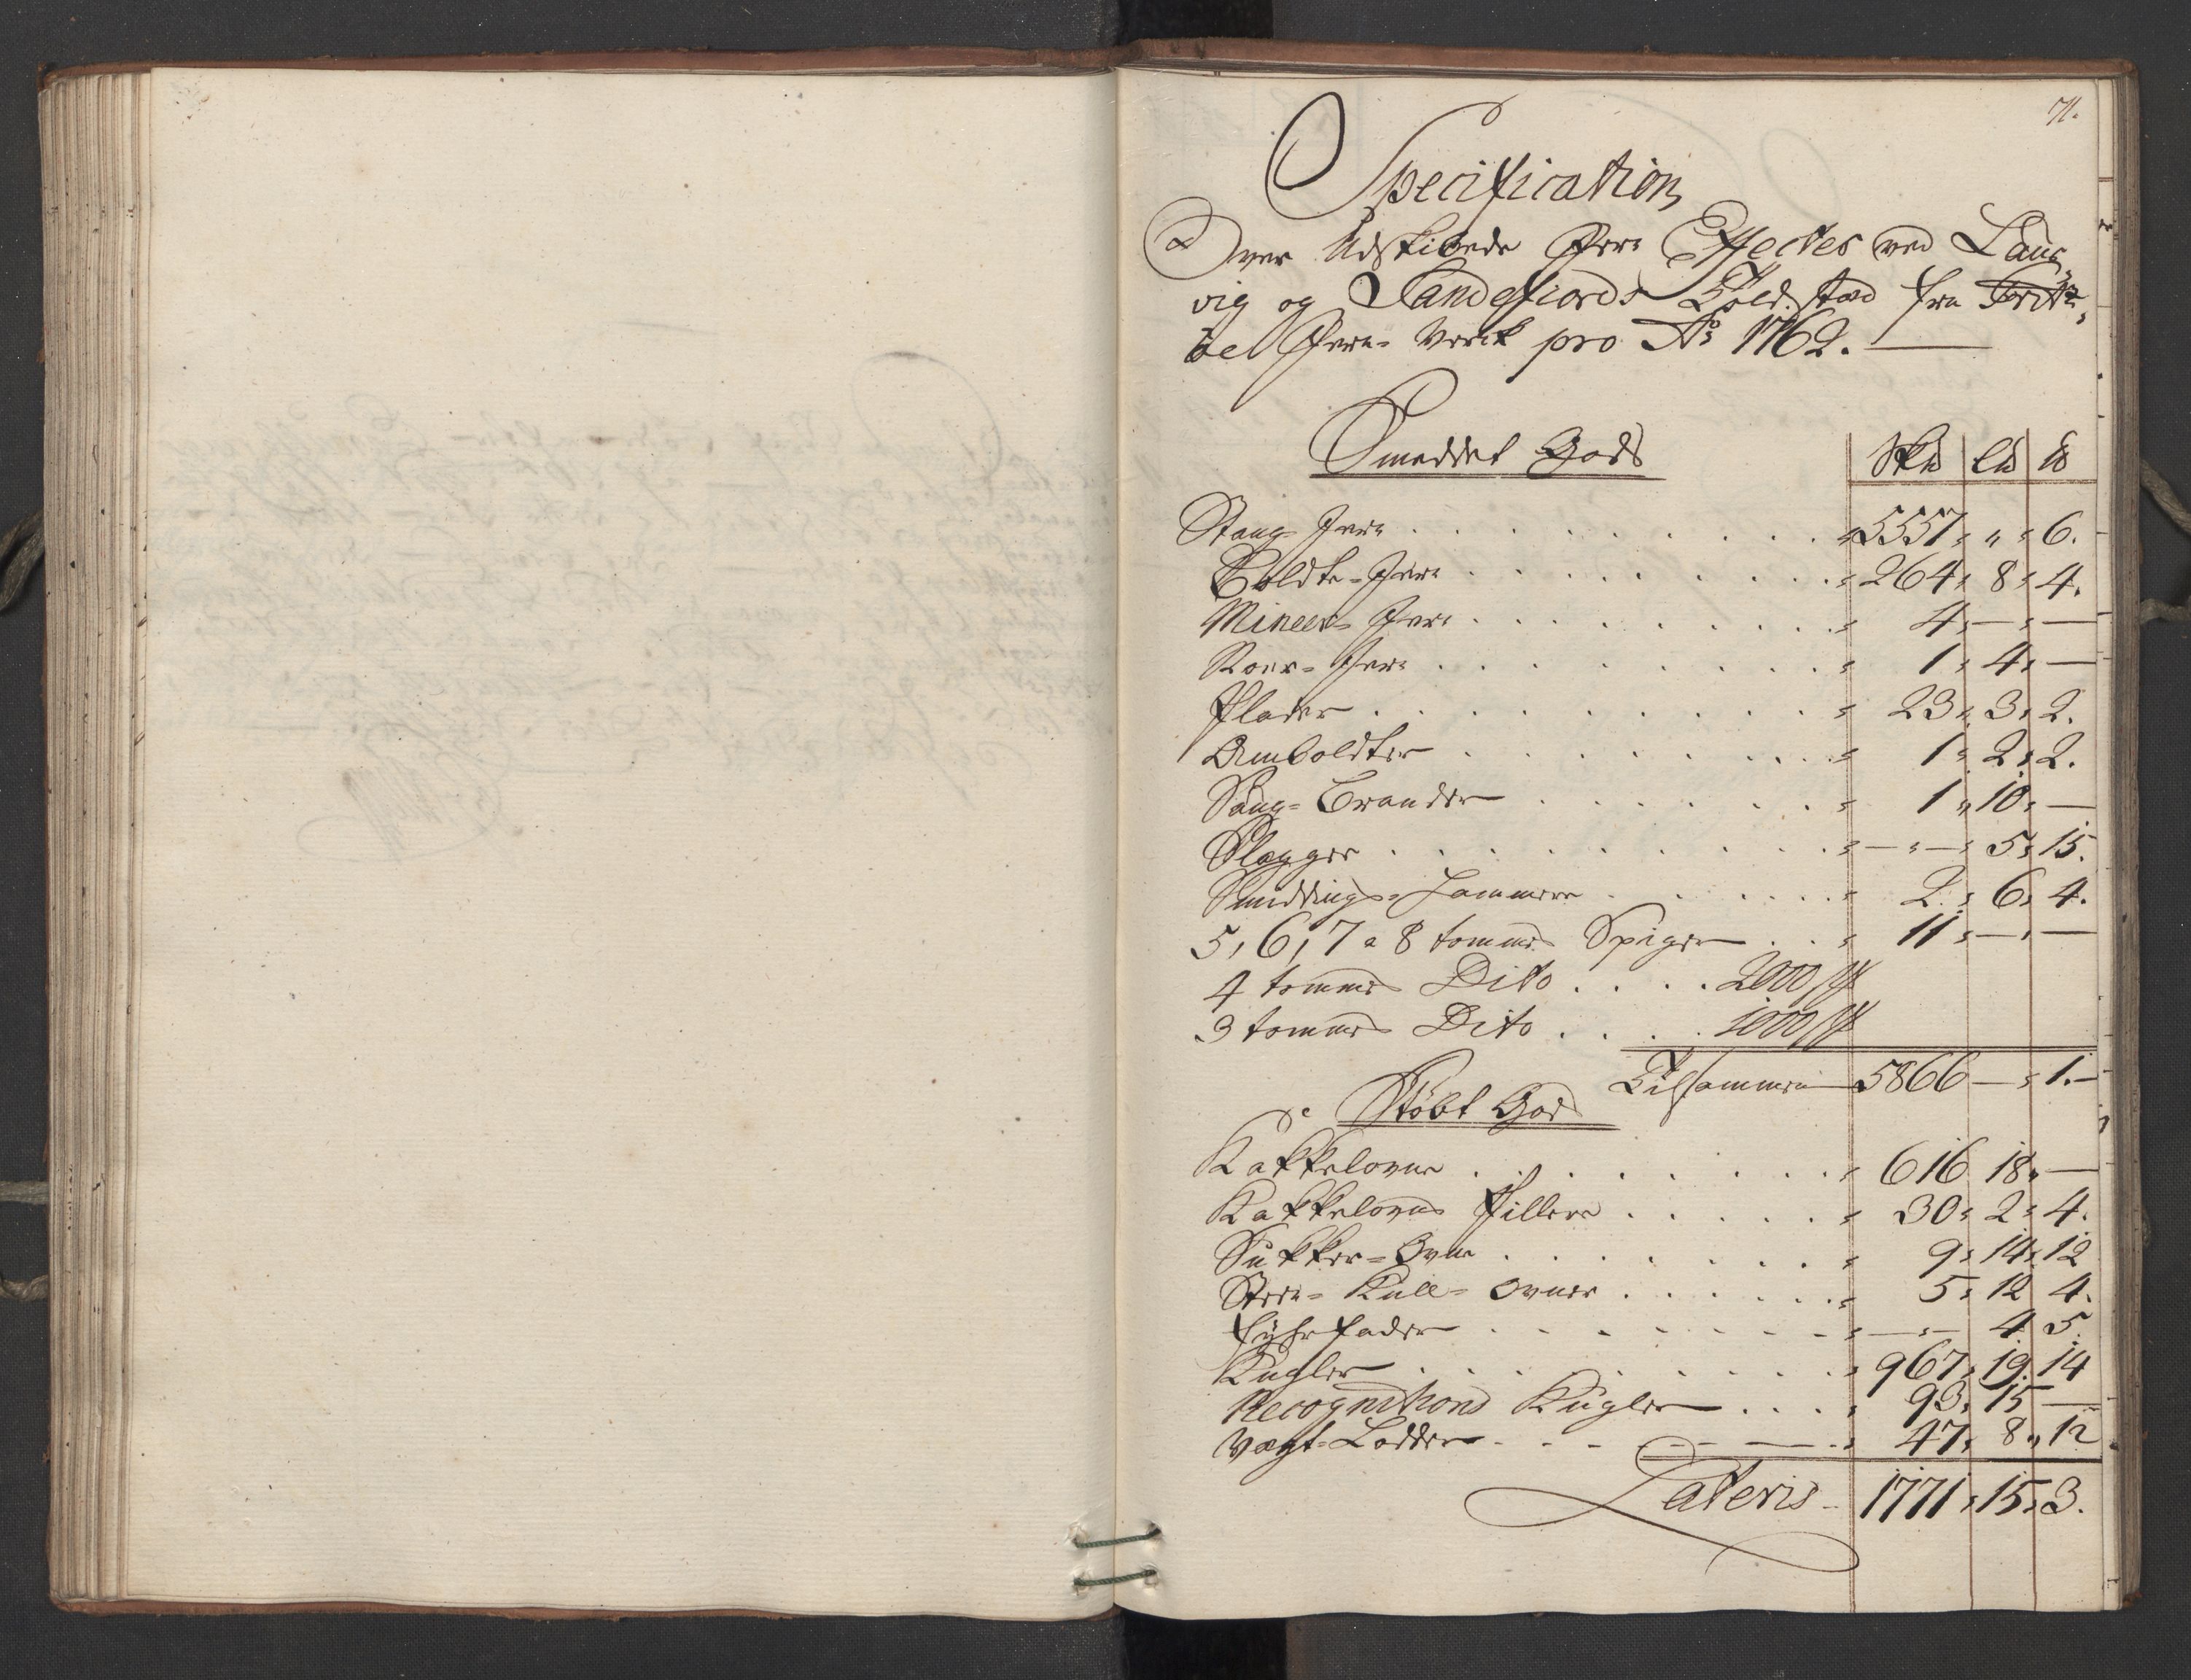 71.
Specification
Over Udskibede Jern Effecter ved Laur
vig og Sandefiords Told-stæd fra Fritz,,
öe Jern-Verck pro Ao 1762.
Smeddet Gods Sk℔ L℔ ℔
Stang-Jern . . . . 5557 " 6.
Boldte-Jern . . . . 264 8 4.
Mineer-Jern . . . . 4 — —
Roer-Jern . . . . 1 4 —
Plader . . . . 23 3 2.
Amboldter . . . . 1 2 2.
Saug-Brander . . . . 1 10 —
Slegger . . . . — 5 15.
Smeddings-Hammere . . . . 2 6 4.
5, 6, 7 a 8 tomme Spiger . . . 11 — —
4 tomme Dito . . . . 2000 st
3 tomme Dito . . . . 1000 st
Tilsammen 5866 — 1.
Støbt Gods
Kakkelovne . . . . 616 18 —
Kakkelovns Pillere . . . . 30 2 4.
Sukker-Ovne . . . . 9 14 12
Steen-Kull-Ovner . . . . 5 12 4.
Fyhrfader . . . . — 4 5.
Kugler . . . . 967 19 14
Recognitions Kugler . . . . 93 15 —
Vægt-Lodder . . . . 47 8 12
Lateris 1771 15 3.